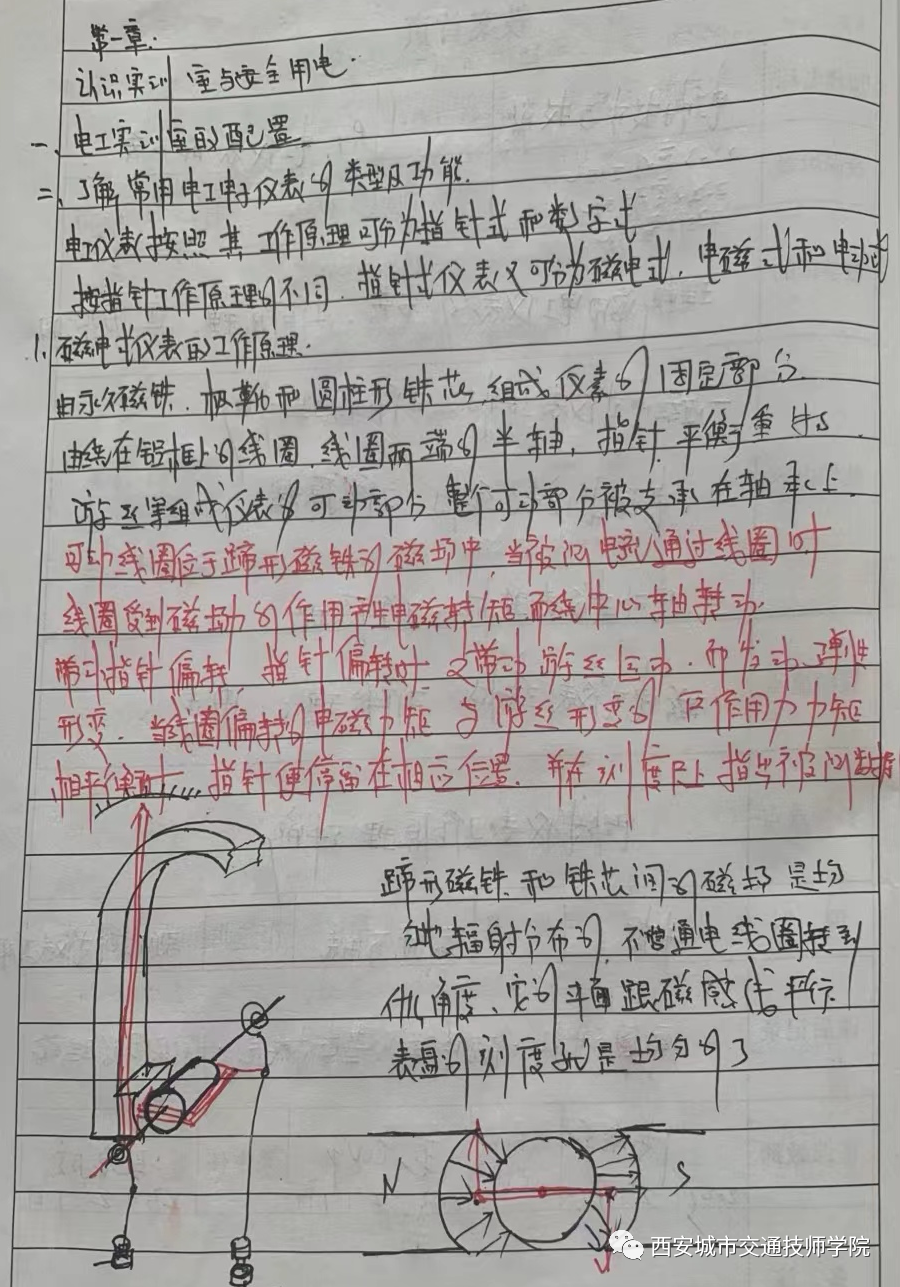 第一章.
认识实训室与安全用电.
一、电工实训室的配置
二、了解常用电工电子仪表的类型及功能.
电工仪表按照其工作原理可分为指针式和数字式
按指针工作原理的不同.指针式仪表又可分为磁电式.电磁式和电动式
1.磁电式仪表的工作原理.
由永久磁铁.极靴和圆柱形铁芯组成仪表的固定部分.
由绕在铝框上的线圈.线圈两端的半轴,指针.平衡重物.
游丝等组成仪表的可动部分 整个可动部分被支承在轴承上.
可动线圈位于蹄形磁铁的磁场中,当被测电流通过线圈时
线圈受到磁场力的作用产生电磁转矩而绕中心轴转动.
带动指针偏转,指针偏转时又带动游丝运动.而发动弹性
形变.当线圈偏转的电磁力矩与游丝形变的反作用力力矩
相平衡时.指针便停留在相应位置.并在刻度尺上指出被测数据
蹄形磁铁和铁芯间的磁场是均
匀地辐射分布的,不管通电线圈转到
什么角度,它的平面跟磁感线平行
表盘的刻度就是均匀的了
N
S
西安城市交通技师学院